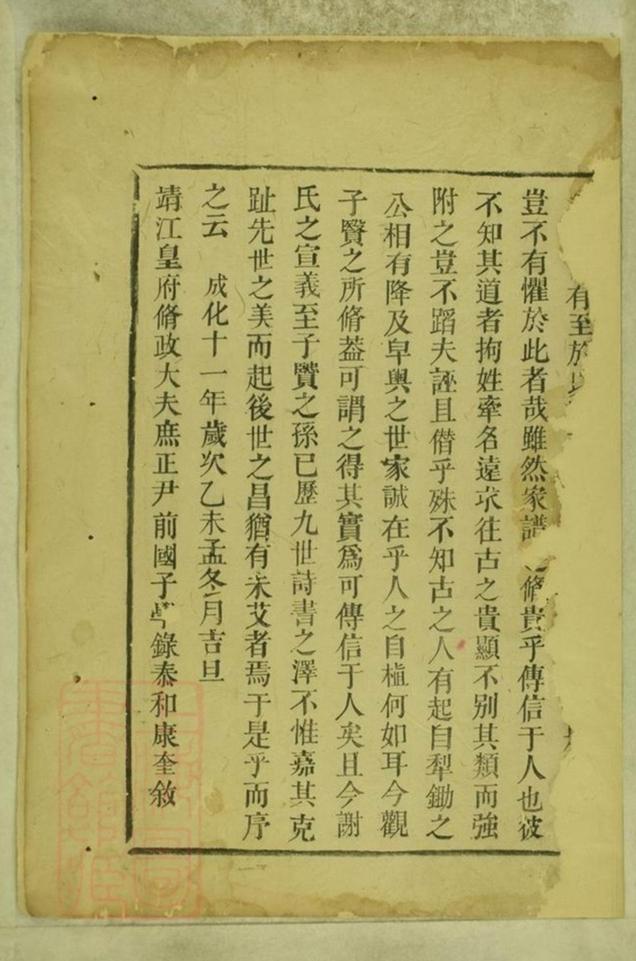 有至於
豈不有懼於此者哉雖然家譜脩貴乎傳信于人也彼
不知其道者拘姓牽名遠求往古之貴顯不别其類而強
附之豈不蹈夫誣且僣乎殊不知古之人有起自犁鋤之
公相有降及皁輿之世家誠在乎人之自植何如耳今觀
子賢之所脩葢可謂之得其實爲可傳信于人矣且今謝
氏之宣義至子賢之孫已歷九世詩書之澤不惟嘉其克
趾先世之美而起後世之昌猶有未艾者焉于是乎而序
之云 成化十一年歲次乙未孟冬月吉旦
靖江皇府脩政大夫庶正尹前國子錄泰和康奎敘